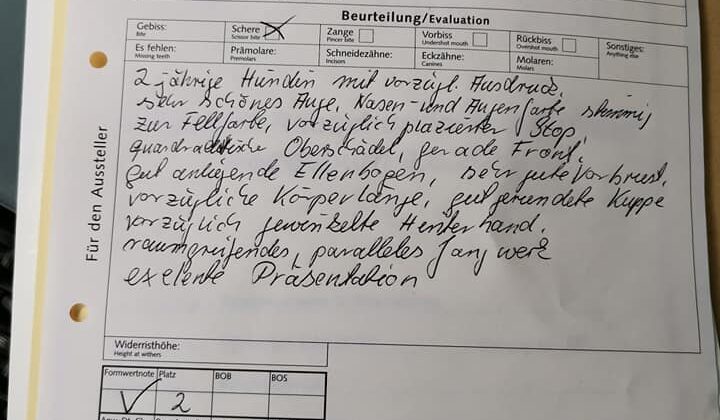 Beurteilung/Evaluation
Gebiss: Schere Zange Vorbiss Rückbiss Sonstiges:
Bite Scissor bite Pincer bite Undershot mouth Overshot mouth Anything else
Es fehlen: Prämolare: Schneidezähne: Eckzähne: Molaren:
Missing teeth Premolars Incisors Canines Molars
Für den Aussteller
2 jährige Hündin mit vorzügl. Ausdruck,
sehr schönes Auge, Nasen- und Augenfarbe stimmig
zur Fellfarbe, vorzüglich plazierter Stop,
Oberschädel, gerade Front,
gut anliegende Ellenbogen, sehr gute Vorbrust,
vorzügliche Körperlänge, gut gerundete Kuppe
vorzüglich gewinkelte Hinterhand.
raumgreifendes, paralleles Gangwerk
exelente Präsentation
Widerristhöhe:
Height at withers
Formwertnote Platz BOB BOS
V 2